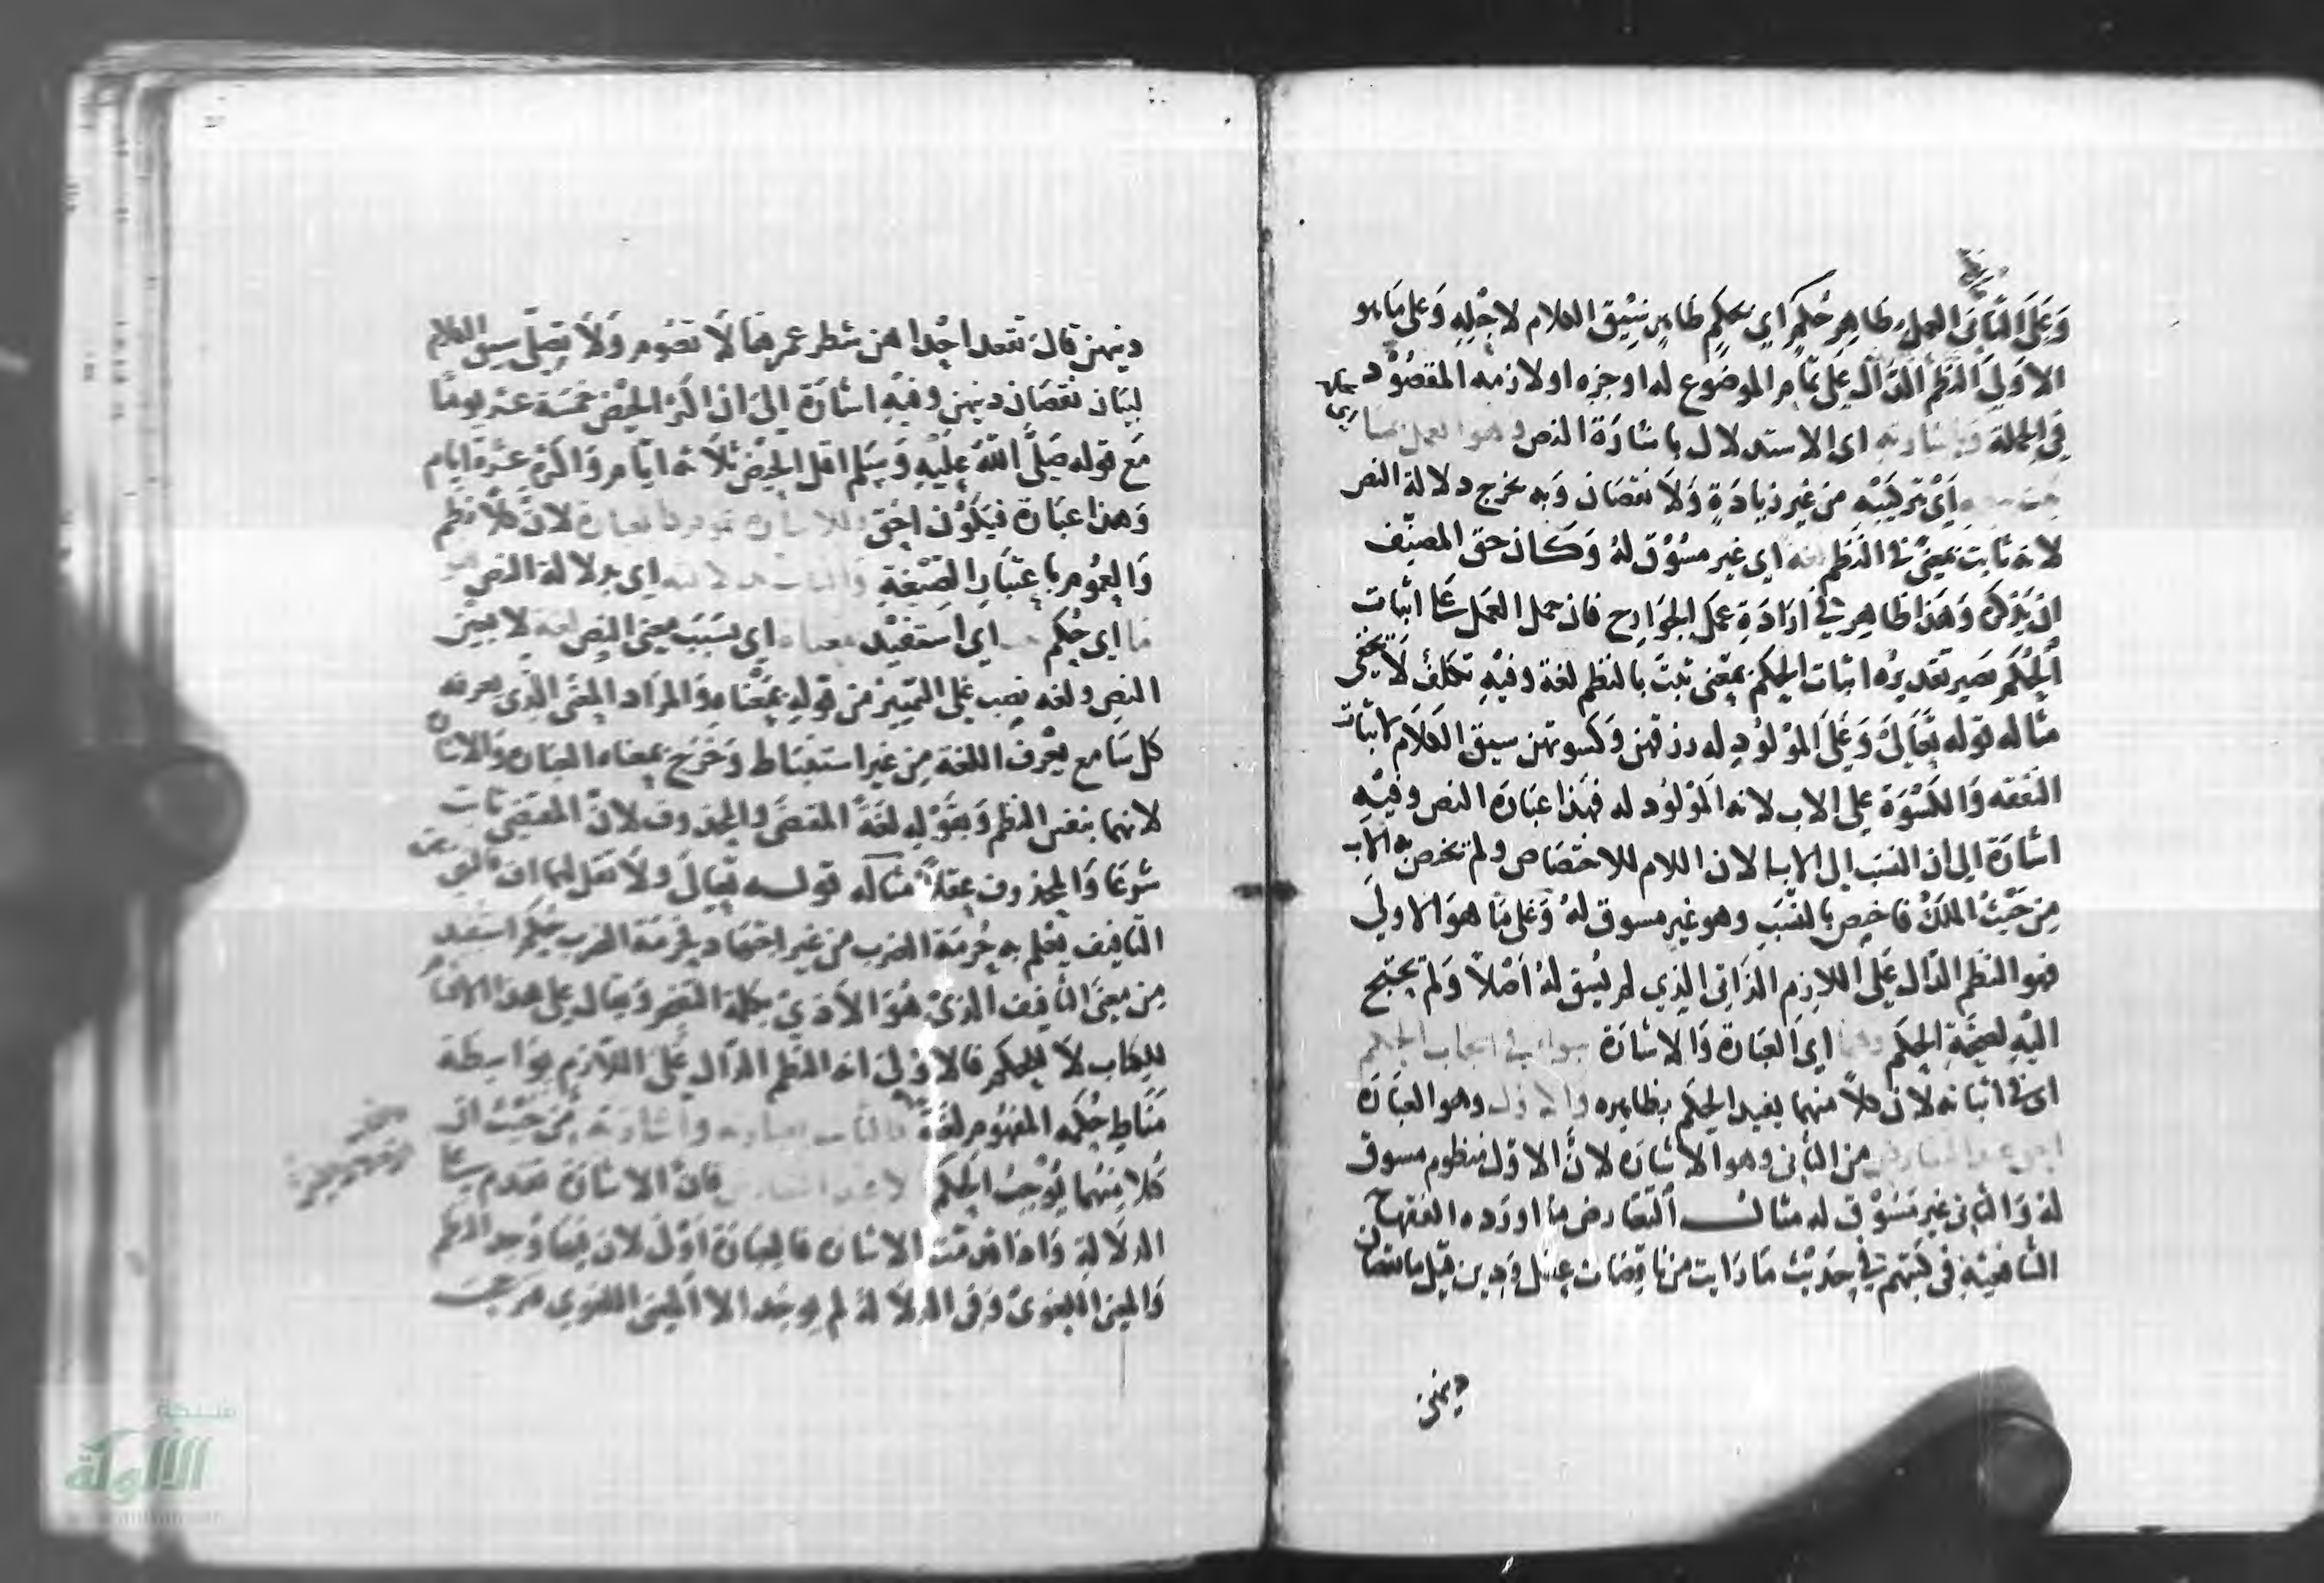 وَعَلَى الثَّانِي العمل بظاهِر حُكمٍ اي بحكمٍ ظاهرٍ سِيْق الكلام لاجْلِهِ وَعلى مَا هو
الاوَلي النظم الدَّالّ عَلى تمام الموضوع له اوجزءه اولازمه المقصُوْد
فِي الجملة وباشارته اى الاستدلال باشارَة النص وهو العمل بما
اَىْ بتركيبْه من غير زيادَةٍ وَلَا نقصَان وَبه يخرج دلالة النص
لانه ثابت بمعنىً في النظم لغة اي غير مسُوْق لهُ وَكان حق المصنِّف
ان يَذكره وَهَذا ظاهِر في ارَادَةِ عمَل الجوَارح فان حمل العَمل عَلى اثبات
الحُكم يَصير تقديرُه اثبات الحكم بمعْنى ثبتَ بالنظم لغة وفيْهِ تكلفٌ لَا يخفى
مثاله قوله تعَالىَ وَعَلَى المَوْلوُدِ له رزقهن وَكسوتهن سيق الكَلَام لاثبات
النفقه وَالكسْوَة على الاب لانه المَوْلوُد له فهَذا عبَارَة النص وفيْهِ
اشارَة الى ان النسَبَ الى الاب لان اللام للاختصَاص ولم يخص به الاب
مِن حَيْثُ الملك فاخِص بالنسَب وهو غير مسوق لهُ وَعَلى مَا هوَ الاولي
فهو النظم الدّال عَلى اللازِم الذاتى الذِي لم يُسَق لهُ اَصْلاً وَلم يحتج
اليْهِ لصِحَّةِ الحكم وهما اي العبَارة وَالاشارَة سواء في ايجاب الحكم
اى في اثباته لان كلاً منهما يفيد الحكم بظاهِره والاول وهو العبَارَة
احق عند التعارض من الثاني وهو الاشارَة لانَّ الاوّل منظوم مسوق
لهُ وَالثاني غير مَسُوْق له مثالُ التعَارض مَا اورَده الفقهاء
الشافعيّة في كتبهم في حَديْث مَا رَايت من ناقصَات عقل ودِين قيل ما نقصان
دينهن
دينهن قال تقعد احْدا هن شطر عمرهَا لَا تصُوم وَلَا تصِلّي سيق الكلام
لبيَان نقصَان دينهن وفيْهِ اشارَة الىَ ان اكثر الحيْض خمسَة عشر يومًا
مَع قوله صَلَّى اللّٰهُ عليْهِ وَسَلم اقل الحَيْض ثلَاثة ايّام وَاكثره عشرة ايّام
وَهذا عبَارة فيَكوْن احَق وللاشارة عموم كما للعبارة لانَّ كلاً نظم
وَالعمُوم باعتبَار الصّيْغةِ وَالثابت بدلالته اي بدلالة النص هو
ما اي حُكم اي اسْتفيْد بمعناه اي بسَبَب معنى النص لغة لا بعين
النصِ ولغه نصِبَ على التمييْز من قولِهِ بمَعْناه وَالمرَاد المعْنى الذِى يعرفه
كل سَامع يعْرف اللغة مِن غير استنبَاط وَخرَج بمعناه العبَارة وَالاشارة
لانهما بنفس النظم وَبقوْلِهِ لغَةً المقتضَى وَالمحذوف لانَّ المقتضى ثابت
شرْعًا وَالمحذوف عقلاً مثاله قوله تعَالَى ولَا تقل لهما اف
التافيف يعْلم به حُرمَة الضرب من غير اجتهَاد فحُرمَة الضرب حكم استفيد
مِن معنى التأفيف الذِىْ هُوَ الاَذيْ بكلمة التضجر وَيقال على هذ الاقسَام
للكتاب لَا للحكم فالاوْلى انه النظم الدّال عَلى اللّازِم بوَاسِطة
مَناطِ حُكمِه المفهُوم لغَةً كالثابت بعبارته واشارته مِن حَيْث ان
كلا مِنهُما يُوْجبُ الحكم لا عند التعارض فان الاشارَة تقدم عَلى
الدلَالة وَاذا قدمَتْ الاشارة فالعبَارَة اَوْلى لان فيها وُجِد النظم
وَالمعنى اللغوىُ وَفى الدلَالة لم يوجَد الا المعنى اللغوي